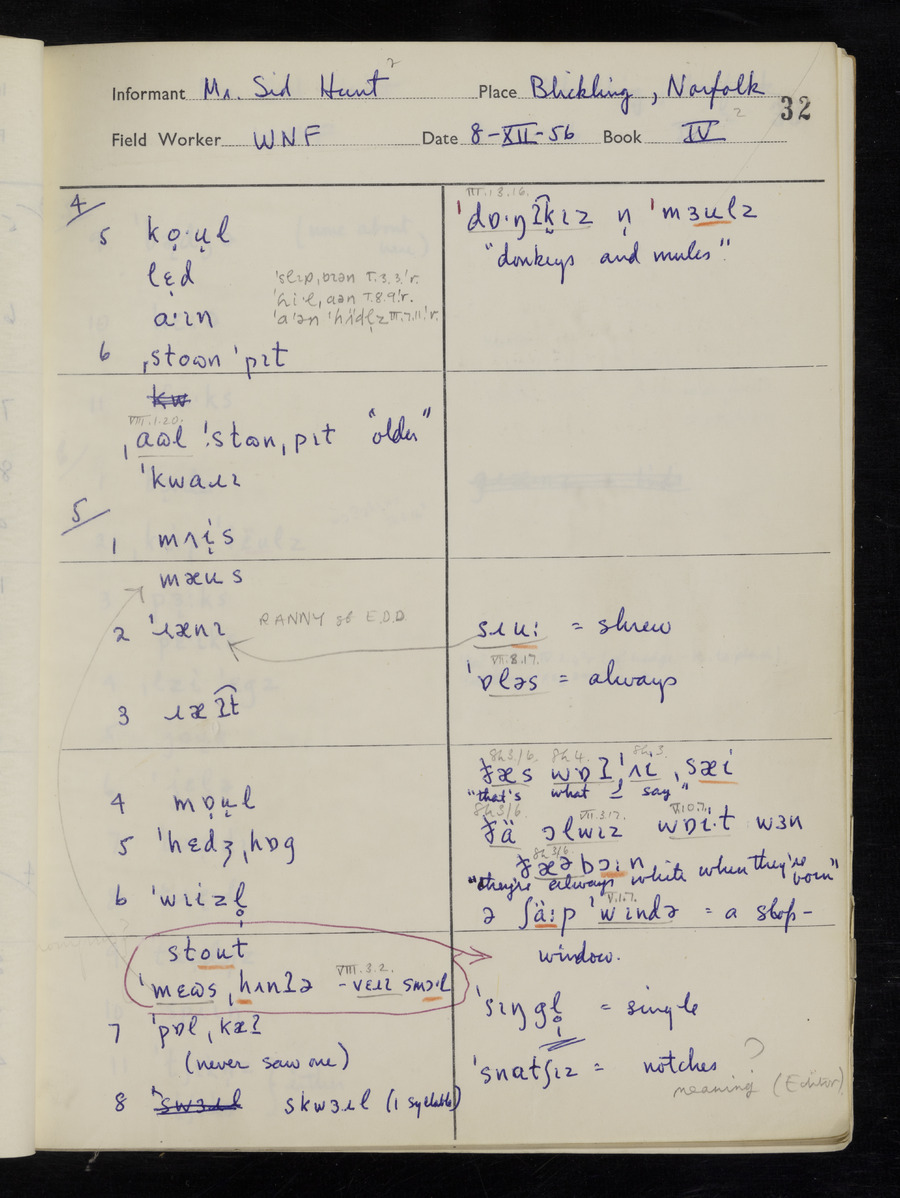 Informant Mr. Sid Hunt 2 Place Blickling, Norfolk
32
Field Worker WNF Date 8-XII-56 Book IV 2
4/
5 kọ·ụl
lɛ̣d
ˈslɪp,bɪən I.3.3.'r.
ɑ·ɪn
ˈhi·l,aən I.8.9.'r.
ˈa'ən ˈhidl̩z III.7.11.'r.
6 ˌstoɷn ˈpɪt
VIII.1.20.
ˌaɷl ˈstɷnˌpɪt "older"
ˈkwaɹɪ
5/
1 mʌi̩s
mæus
2 ˈɹænɪ RANNY sb E.D.D.
3 ɹæʔ͡t
4 mɒ̣ụl
5 ˈhɛdʒˌhɒg
6 ˈwɪizl̩
stout
ˈmɛɷsˌhʌnʔə VIII.3.2. - vɛɹɪ smɔːl
7 ˈpɒlˌkæʔ
(never saw one)
8 skwɜɹl (1 syllable)
III.13.16.
ˈdɒ·ŋʔ͡kɪz n̩ ˈmɜulz
"donkeys and mules"
sɹuː = shrew
VII.8.17.
ˈɒləs = always
8h3/6. 8h4. 8h.3.
ðæs wɒʔ ˈʌi ˌsæi
"that's what I say"
8h3/6 VII.3.17. V.10.7.
ðä ɔlwɪz wɒi·t wɜn
8h3/6
ðæə bɔːn
"they're always white when they're born"
V.1.7.
ə ʃäːp ˈwɪndə = a shop-
window.
ˈsɪŋgl̩ = single
ˈsnatʃɪz = notches
?
meaning (Editor)